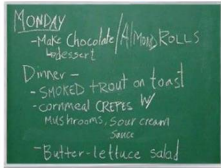 MONDAY
- Make Chocolate/AlMond ROLLS
↳dessert
Dinner -
- SMOKED tROUT on toast
- cornmeal CREPES W/
MUSHROOMS, SOUR CREAM
SAUCE
- Butter-lettuce salad